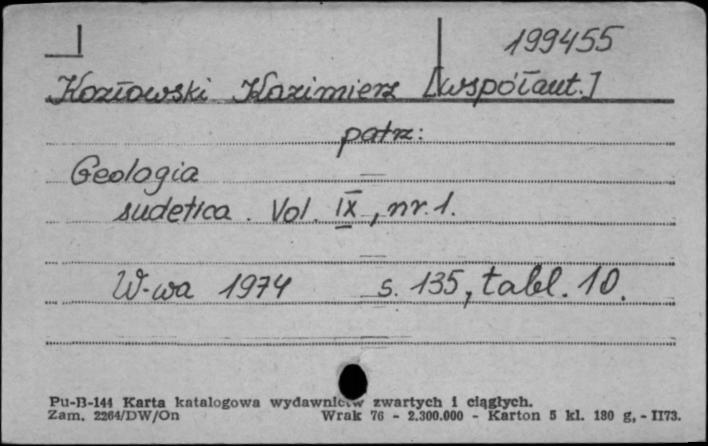 199455
Kozłowski Kazimierz [współaut.]
patrz:
Geologia
sudetica. Vol. IX, nr. 1.
W-wa 1974 s. 135, tabl. 10.
Pu-B-144 Karta katalogowa wydawnictw zwartych i ciągłych.
Zam. 2264/DW/On Wrak 76 - 2.300.000 - Karton 5 kl. 180 g, - II73.